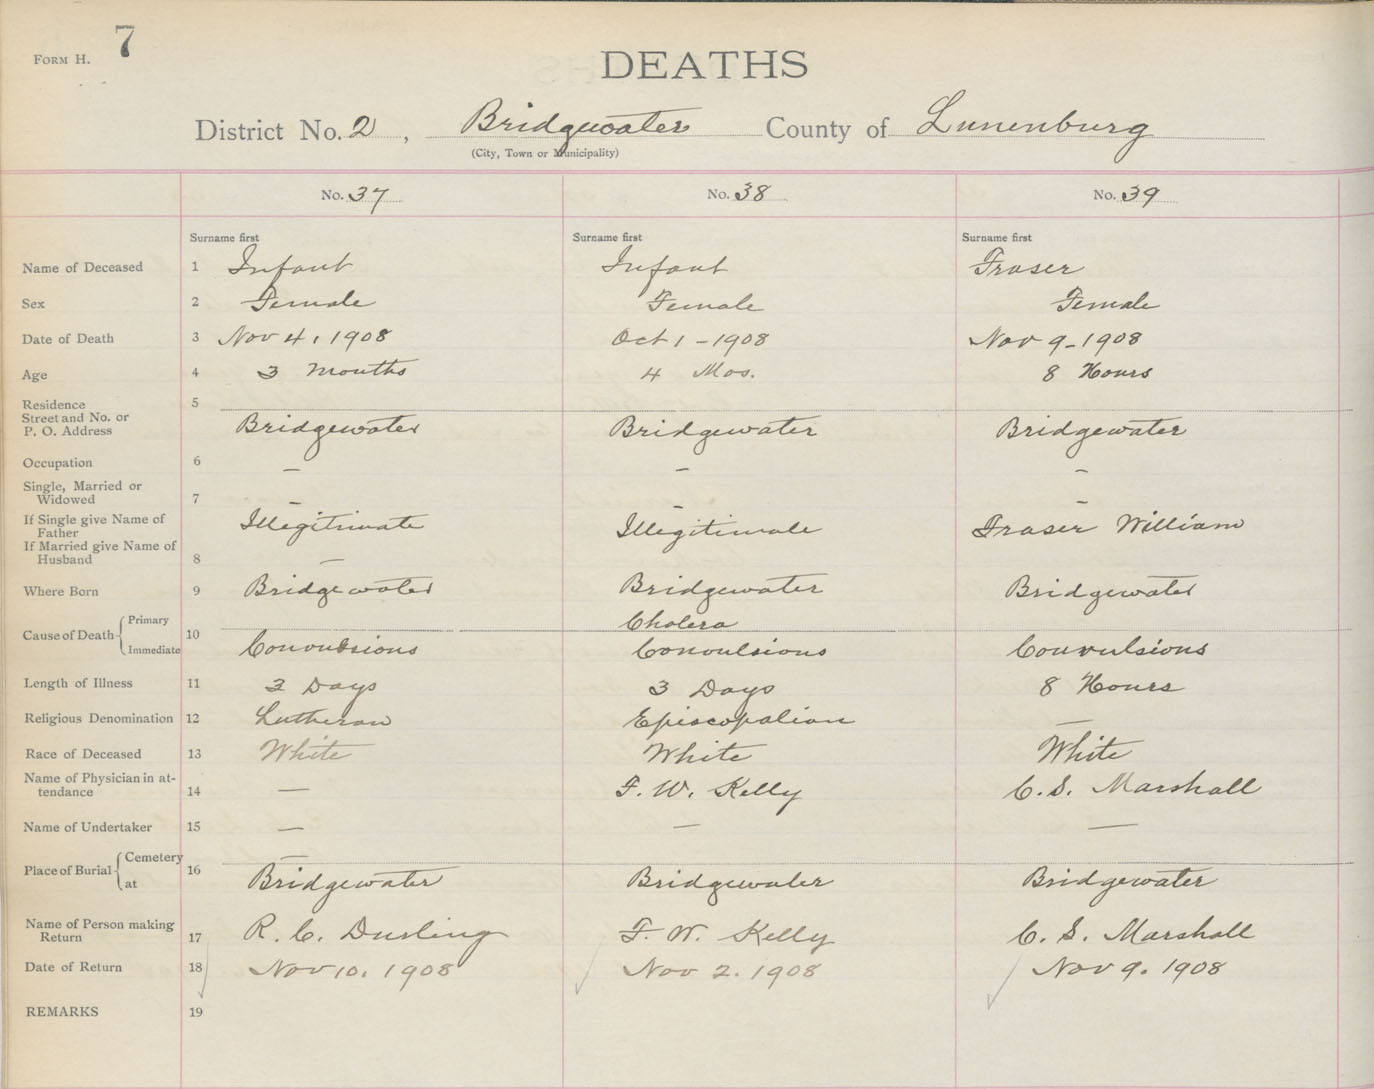 FORM H. 7
DEATHS
District No. 2, Bridgewater County of Lunenburg
(City, Town or Municipality)
No. 37 No. 38 No. 39
Surname first Surname first Surname first
Name of Deceased 1 Infant Infant Fraser
Sex 2 Female Female Female
Date of Death 3 Nov 4, 1908 Oct 1 - 1908 Nov 9 - 1908
Age 4 3 Months 4 Mos. 8 Hours
Residence 5
Street and No. or
P. O. Address Bridgewater Bridgewater Bridgewater
Occupation 6 — — —
Single, Married or
Widowed 7 — — —
If Single give Name of
Father Illegitimate Illegitimate Fraser William
If Married give Name of
Husband 8 —
Where Born 9 Bridgewater Bridgewater Bridgewater
Primary Cholera
Cause of Death 10
Immediate Convulsions Convulsions Convulsions
Length of Illness 11 2 Days 3 Days 8 Hours
Religious Denomination 12 Lutheran Episcopalian —
Race of Deceased 13 White White White
Name of Physician in at-
tendance 14 — F. W. Kelly C. S. Marshall
Name of Undertaker 15 — — —
Cemetery —
Place of Burial 16
at Bridgewater Bridgewater Bridgewater
Name of Person making
Return 17 R. C. Dursling F. W. Kelly C. S. Marshall
Date of Return 18 Nov 10. 1908 Nov 2. 1908 Nov 9. 1908
REMARKS 19